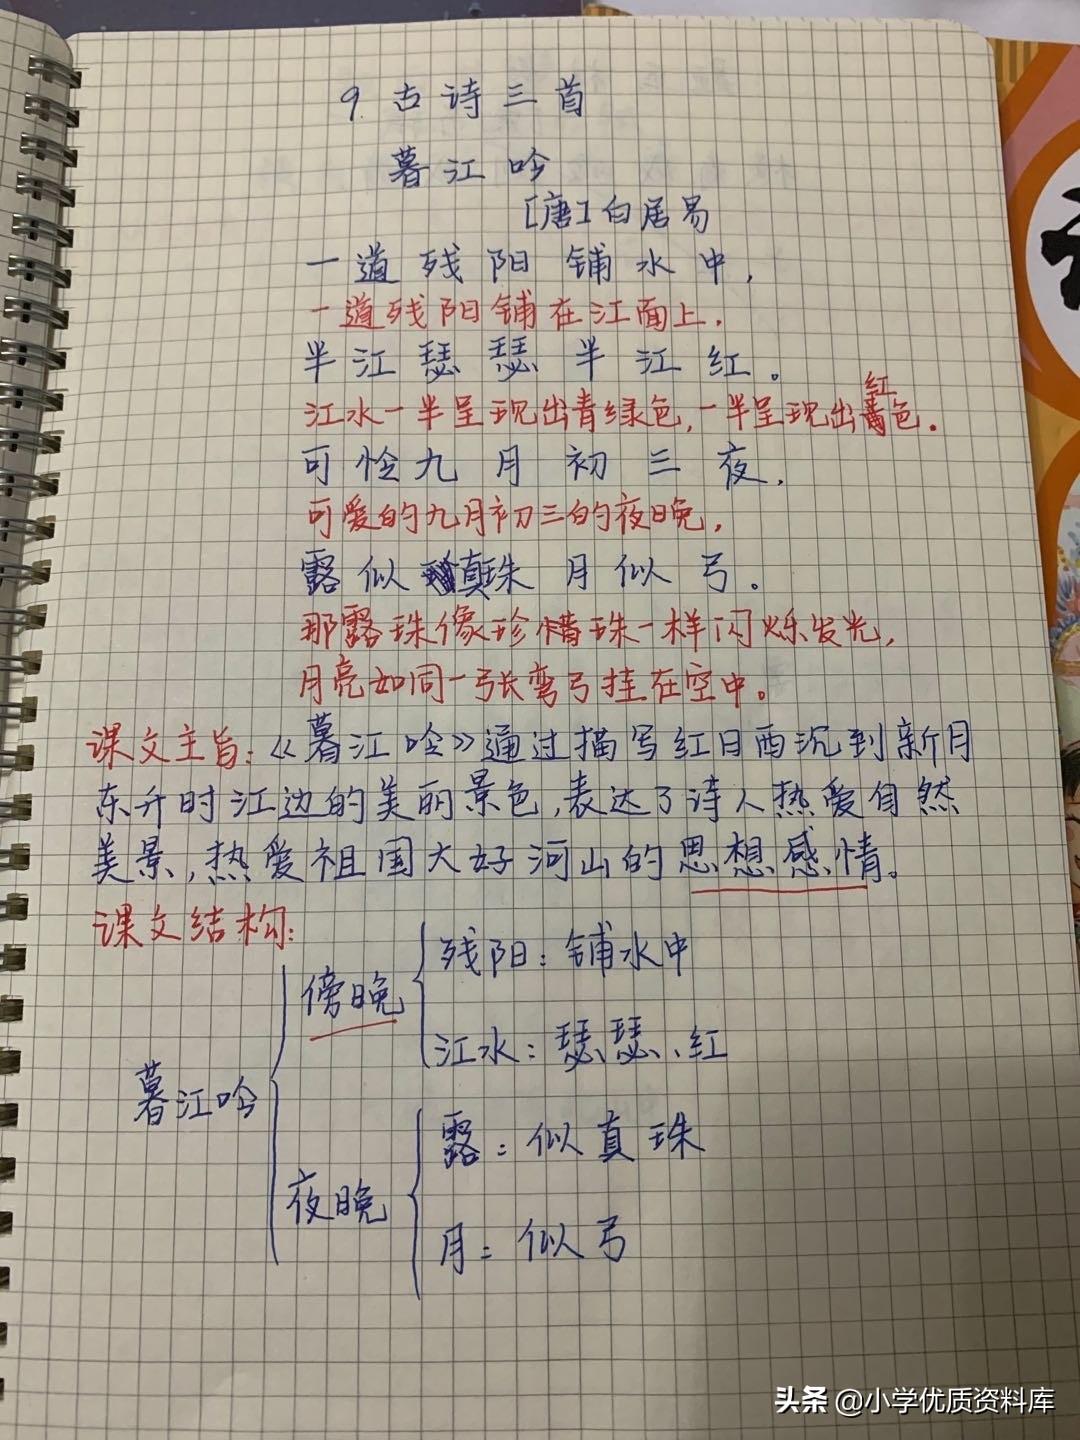 9.古诗三首
暮江吟
[唐]白居易
一道残阳铺水中，
一道残阳铺在江面上，
半江瑟瑟半江红。
红
江水一半呈现出青绿色，一半呈现出色。
可怜九月初三夜，
可爱的九月初三的夜晚，
露似真珠月似弓。
那露珠像珍惜珠一样闪烁发光，
月亮如同一张弯弓挂在空中。
课文主旨：《暮江吟》通过描写红日西沉到新月
东升时江边的美丽景色，表达了诗人热爱自然
美景，热爱祖国大好河山的思想感情。
课文结构：
残阳：铺水中
傍晚
江水：瑟瑟、红
暮江吟
露：似真珠
夜晚
月：似弓
头条 @小学优质资料库